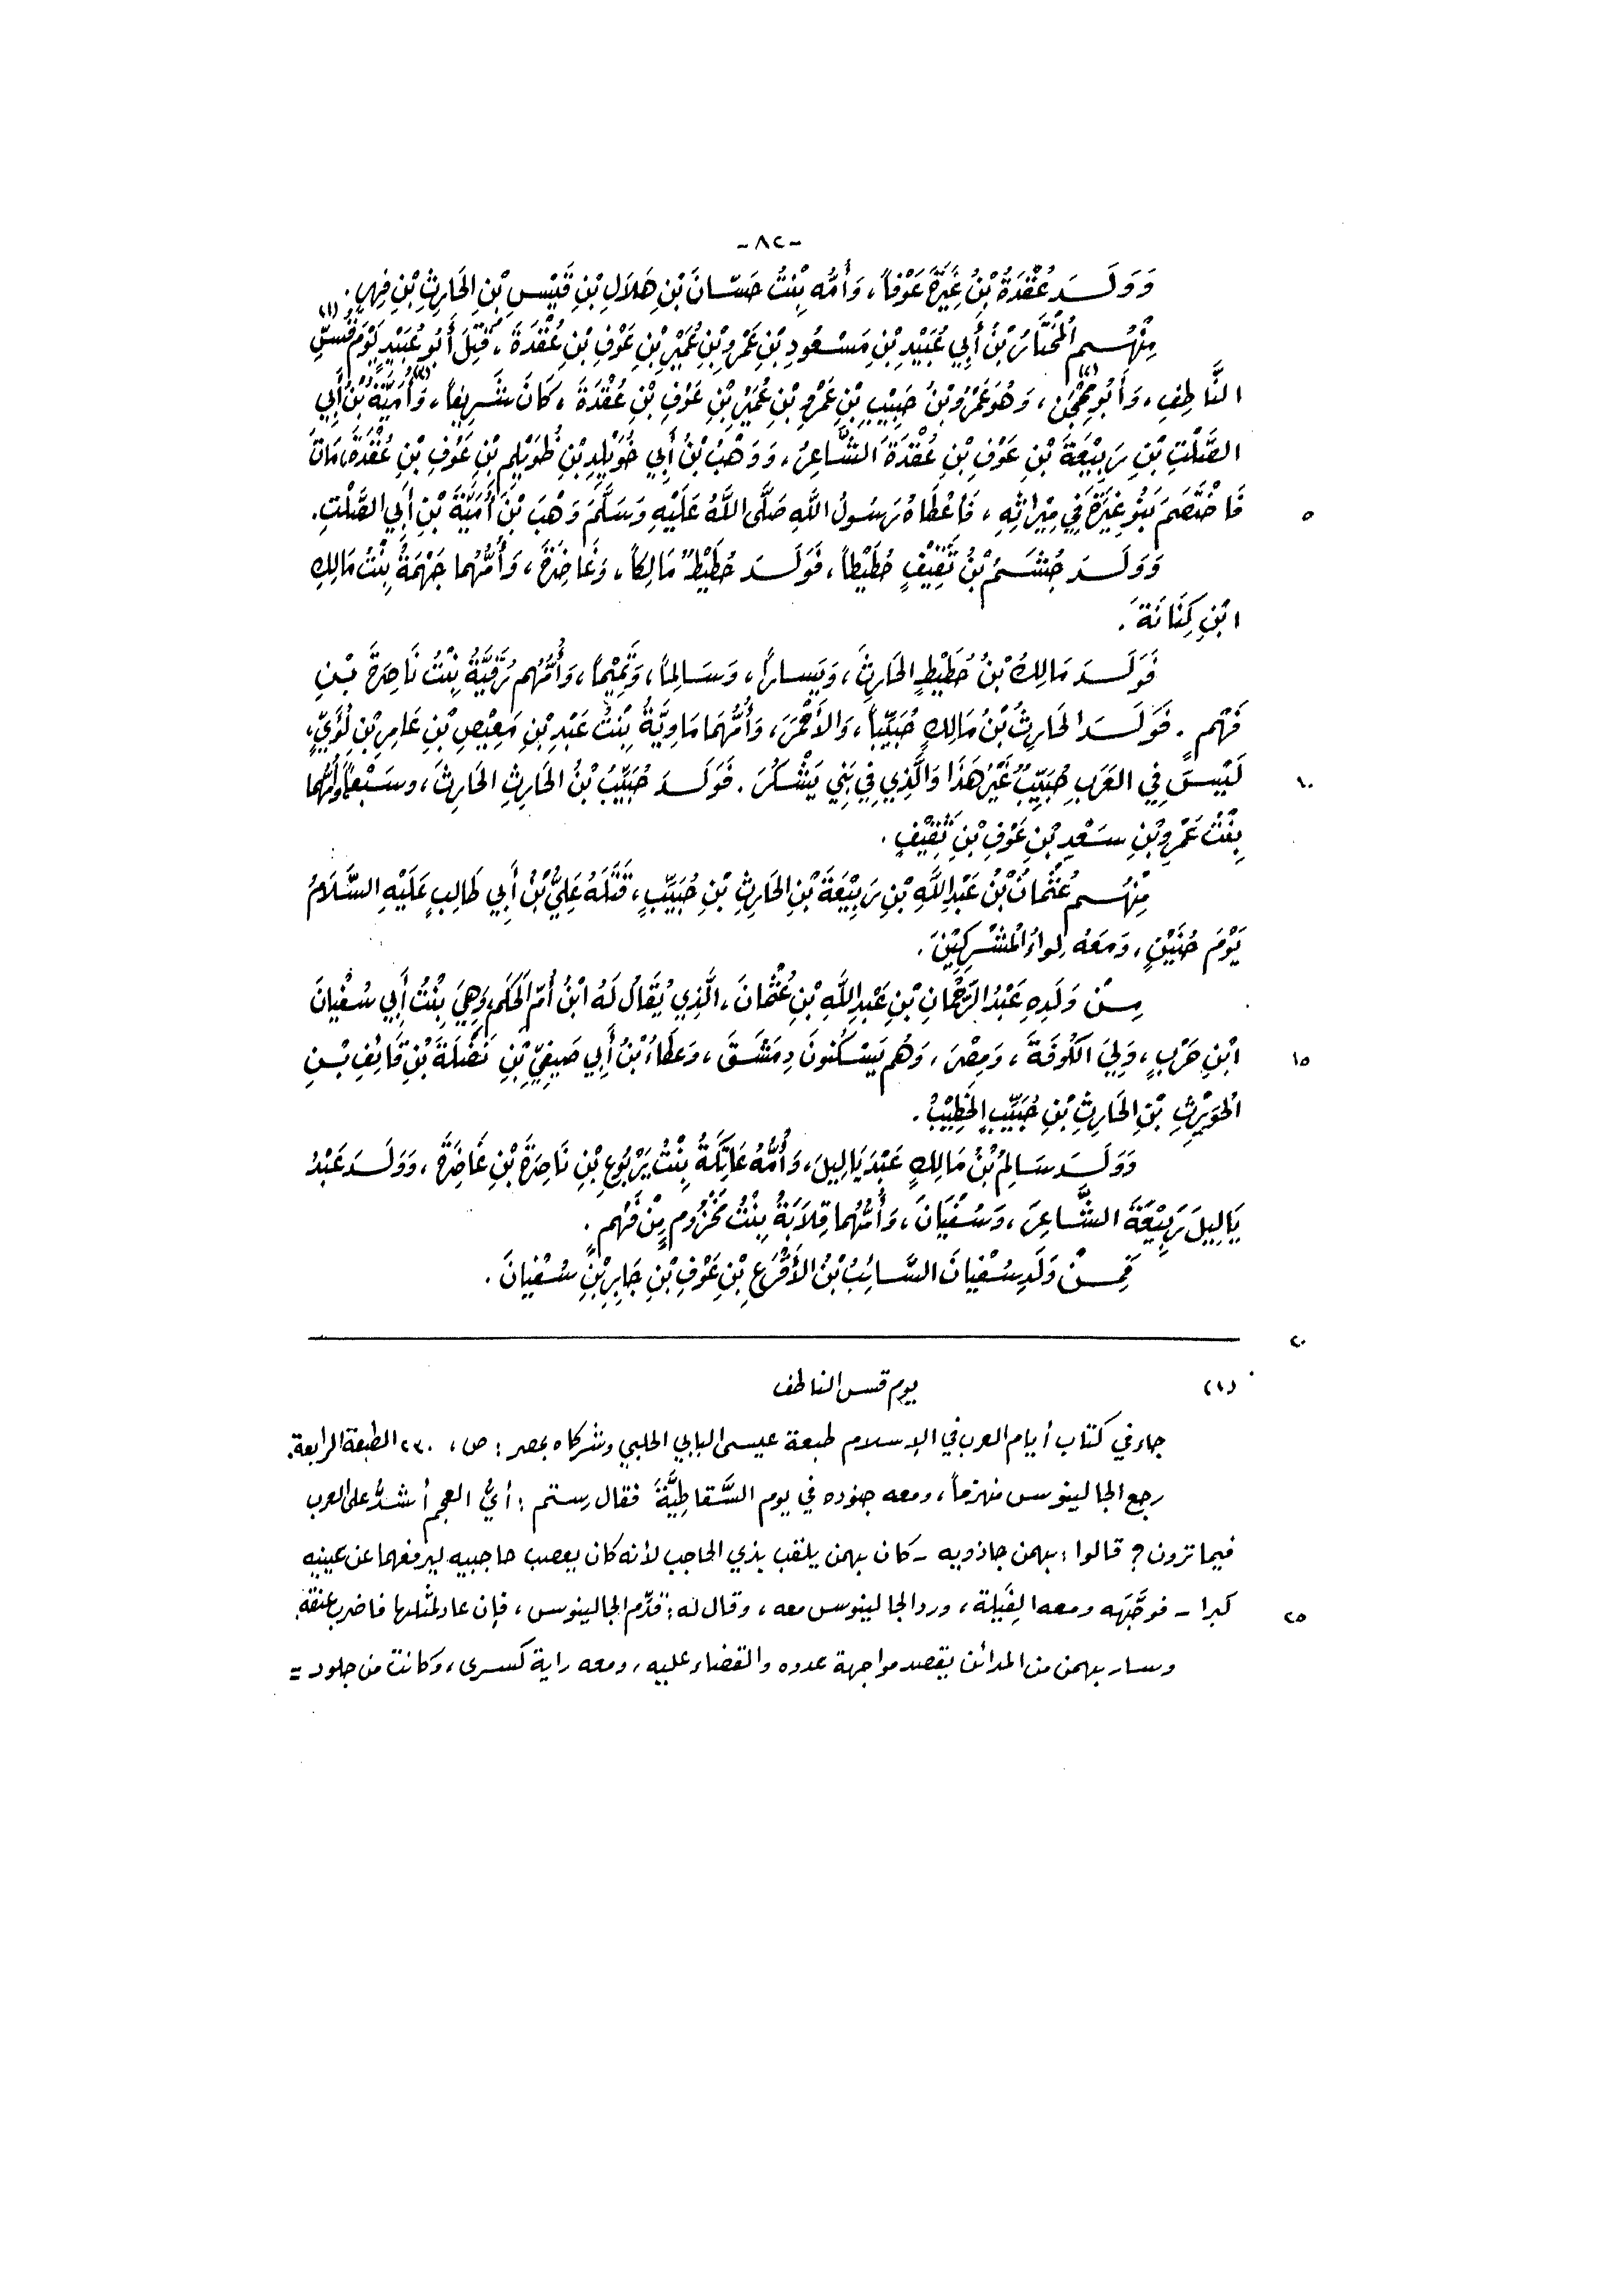 -٨٢-
وَوَلَـدَ عُقْدَةُ بْنُ غِيَرَةَ عَوْفاً، وَأُمُّه بِنْتُ حَسّانَ بْنِ هِلاَلِ بْنِ قَيْسِ بْنِ الحَارِثِ بْنِ فِهْرٍ.
مِنْهُـم الْمُخْتَارُ بْنُ أَبِي عُبَيْدِ بْنِ مَسْعُودِ بْنِ عَمْرِو بْنِ عُمَيْرِ بْنِ عَوْفِ بْنِ عُقْدَةَ، قُتِلَ أَبُو عُبَيْدٍ يَوْمَ قُسِّ (١)
النَّاطِفِ، وَأَبُو مِحْجَنٍ (٢)، وَهُوَ عَمْرُو بْنُ حَبِيْبِ بْنِ عَمْرِو بْنِ عُمَيْرِ بْنِ عَوْفِ بْنِ عُقْدَةَ، كَانَ شَرِيفاً، وَأُمَيَّةُ (٣) بْنُ أَبِي
الصَّلْتِ بْنِ رَبِيْعَةَ بْنِ عَوْفِ بْنِ عُقْدَةَ الشَّاعِرُ، وَوَهْبُ بْنُ أَبِي خُوَيْلِدِ بْنِ ظُوَيْلِمِ بْنِ عَوْفِ بْنِ عُقْدَةَ، مَاتَ
فَاخْتَصَمَ بَنُو غِيَرَةَ فِي مِيْرَاثِهِ، فَأَعْطَاهُ رَسُولُ اللَّهِ صَلَّى اللَّهُ عَلَيْهِ وَسَلَّمَ وَهْبَ بْنَ أُمَيَّةَ بْنِ أَبِي الصَّلْتِ. ٥
وَوَلَـدَ جُشَـمُ بْنُ ثَقِيْفٍ حُطَيْطاً، فَوَلَـدَ حُطَيْطٌ مَالِكاً، وَغَاضِرَةَ، وَأُمُّهُما جَهْمَةُ بِنْتُ مَالِكِ
ابْنِ كِنَانَةَ.
فَوَلَـدَ مَالِكُ بْنُ حُطَيْطٍ الحَارِثَ، وَيَسَاراً، وَسَالِماً، وَتَمِيْماً، وَأُمُّهُم رُقَيَّةُ بِنْتُ نَاصِرَةَ بْـنِ
فَهْمٍ. فَوَلَـدَ الحَارِثُ بْنُ مَالِكٍ حُبَيِّباً، وَالأَحْمَرَ، وَأُمُّهُمَا مَاوِيَّةُ بِنْتُ عَبْدِ بْنِ مَعِيْصِ بْنِ عَامِرِ بْنِ لُؤَيٍّ،
لَيْسَ فِي العَرَبِ حُبَيِّبٌ غَيْرُ هَذَا وَالَّذِي فِي بَنِي يَشْكُرَ. فَوَلَـدَ حُبَيِّبُ بْنُ الحَارِثِ الحَارِثَ، وسَبْعاً، وَأُمُّهُما ١٠
بِنْتُ عَمْرِو بْنِ سَعْدِ بْنِ عَوْفِ بْنِ ثَقِيْفٍ.
مِنْهُـم عُثْمَانُ بْنُ عَبْدِ اللَّهِ بْنِ رَبِيْعَةَ بْنِ الحَارِثِ بْنِ حُبَيِّبٍ، قَتَلَهُ عَلِيُّ بْنُ أَبِي طَالِبٍ عَلَيْهِ السَّلَامُ
يَوْمَ حُنَيْنٍ، وَمَعَهُ لِوَاءُ الْمُشْرِكِيْنَ.
مِـنْ وَلَدِهِ عَبْدُ الرَّحْمَانِ بْنِ عَبْدِ اللَّهِ بْنِ عُثْمَانَ، الَّذِي يُقَالُ لَهُ ابْنُ أُمِّ الحَكَمِ، وَهِيَ بِنْتُ أَبِي سُفْيَانَ
ابْنِ حَرْبٍ، وَلِيَ الكُوفَةَ، وَمِصْرَ، وَهُم يَسْكُنُونَ دِمَشْقَ، وَعَطَاءُ بْنُ أَبِي صَيْفِيِّ بْنِ نَضْلَةَ بْنِ قَائِفِ بْـنِ ١٥
الْحُوَيْرِثِ بْنِ الحَارِثِ بْنِ حُبَيِّبٍ الخَطِيْبُ.
وَوَلَـدَ سَالِمُ بْنُ مَالِكٍ عَبْدَ يَالِيلَ، وَأُمُّهُ عَاتِكَةُ بِنْتُ يَرْبُوعِ بْنِ نَاصِرَةَ بْنِ غَاضِرَةَ، وَوَلَـدَ عَبْدُ
يَالِيلَ رَبِيْعَةَ الشَّاعِرَ، وَسُفْيَانَ، وَأُمُّهُما قِلاَبَةُ بِنْتُ مَخْزُومٍ مِنْ فَهْمٍ.
فَمِـنْ وَلَدِ سُفْيَانَ السَّائِبُ بْنُ الأَقْرَعِ بْنِ عَوْفِ بْنِ جَابِرِ بْنِ سُفْيَانَ.
٢٠
(١) يوم قس الناطف
جاء في كتاب أيام العرب في الإسلام طبعة عيسى البابي الحلبي وشركاه بمصر: ص، ٢٣٠ الطبعة الرابعة.
رجع الجالينوس منهزماً، ومعه جنوده في يوم السَّقاطِيَّة فقال رستم: أيُّ العجم أشدُّ على العرب
فيما ترون؟ قالوا: بهمن جاذويه - كان بهمن يلقب بذي الحاجب لأنه كان يعصب حاجبيه ليرفعهما عن عينيه
كبرا - فوجَّهه ومعه الفِيَلة، ورد الجالينوس معه، وقال له: قدِّم الجالينوس، فإن عاد لمثلها فاضرب عنقه. ٢٥
وسار بهمن من المدائن يقصد مواجهة عدوه والقضاء عليه، ومعه راية كسرى، وكانت من جلود =